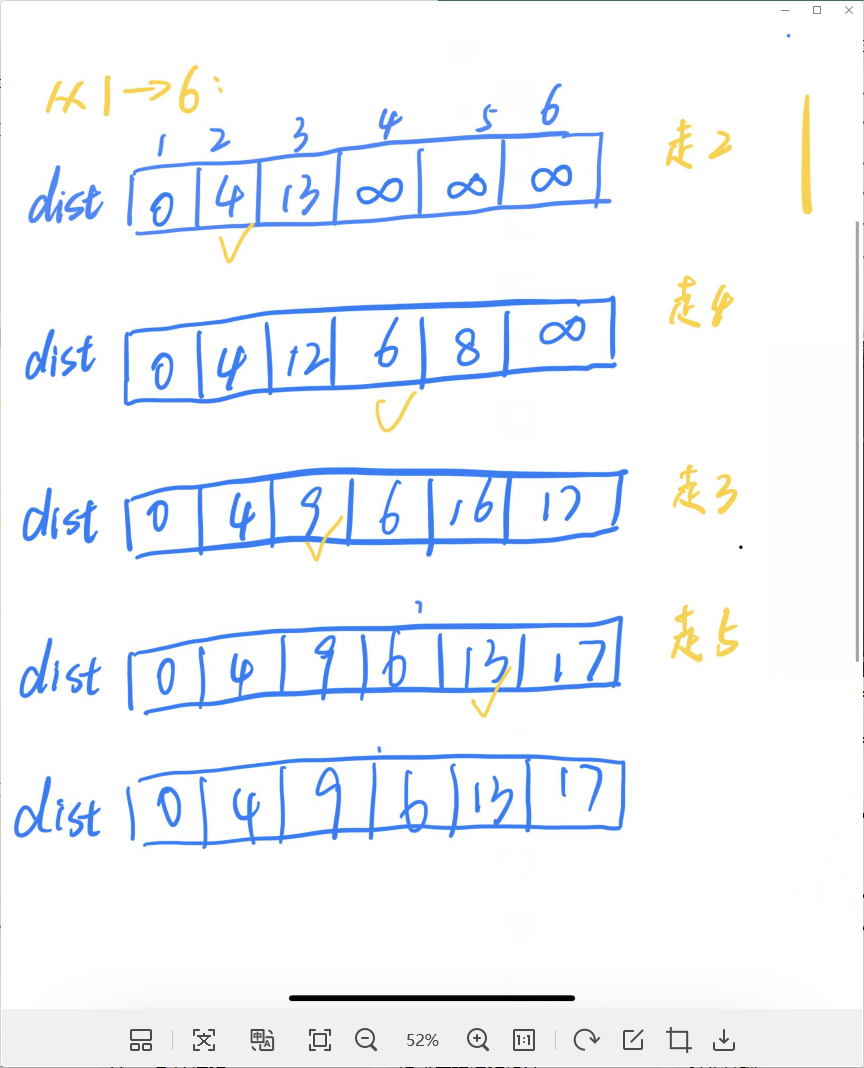 从1→6:
1 2 3 4 5 6
dist 0 4 13 ∞ ∞ ∞ 走2
dist 0 4 12 6 8 ∞ 走4
dist 0 4 9 6 16 17 走3
dist 0 4 9 6 13 17 走5
dist 0 4 9 6 13 17
52%
1:1